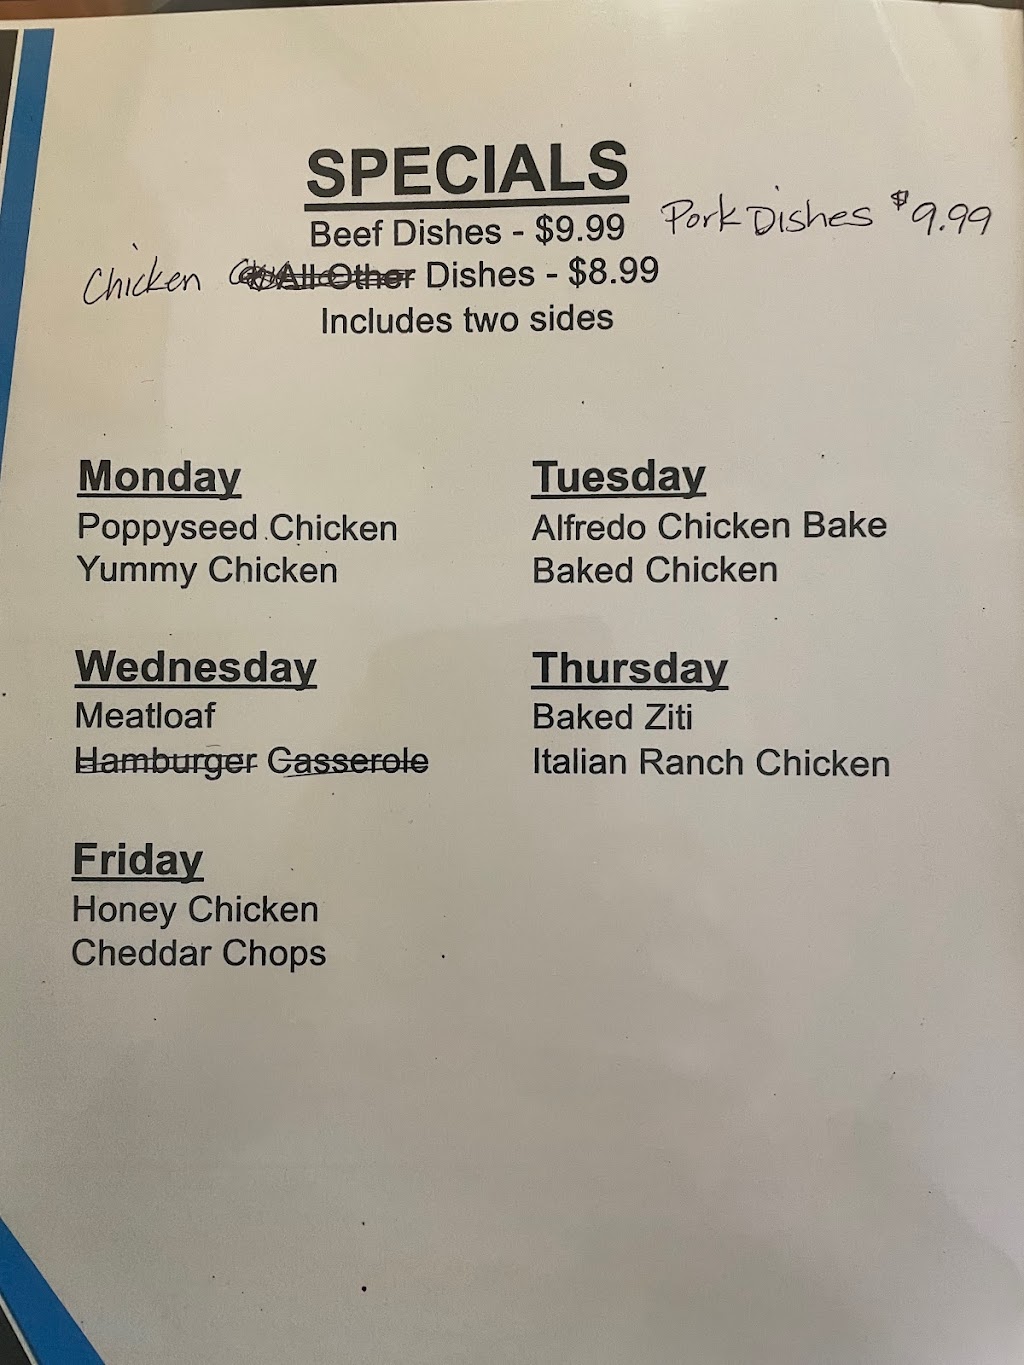 SPECIALS
Beef Dishes - $9.99 Pork Dishes $9.99
Chicken All Other Dishes - $8.99
Includes two sides
Monday
Poppyseed Chicken
Yummy Chicken
Tuesday
Alfredo Chicken Bake
Baked Chicken
Wednesday
Meatloaf
Hamburger Casserole
Thursday
Baked Ziti
Italian Ranch Chicken
Friday
Honey Chicken
Cheddar Chops